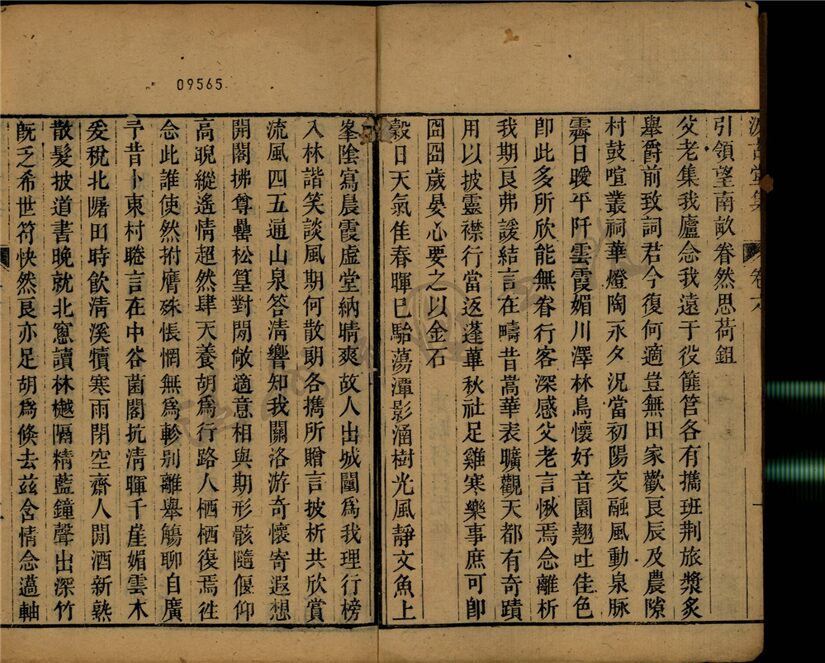 09565
引領望南畝眷然思荷鉏
父老集我廬念我遠于役簞笥各有攜班荆旅漿炙
舉爵前致詞君今復何適豈無田家歡良辰及農隙
村鼓喧叢祠華燈陶永夕況當初陽交融風動泉脉
霽日曖平阡雲霞媚川澤林鳥懷好音園翹吐佳色
卽此多所欣能無眷行客深感父老言愀焉念離析
我期良弗諼結言在疇昔嵩華表曠觀天都有奇蹟
用以披靈襟行當返蓬蓽秋社足雞寒樂事庶可卽
囧囧歲晏心要之以金石
穀日天氣佳春暉已駘蕩潭影涵樹光風靜文魚上
峯陰寫晨霞虛堂納晴爽故人出城闉爲我理行榜
入林諧笑談風期何散朗各攜所贈言披析共欣賞
流風四五通山泉答清響知我關洛游奇懷寄遐想
開閣拂尊罍松篁對閒敞適意相與期形骸隨偃仰
高睨縱遙情超然肆天養胡爲行路人栖栖復焉徃
念此誰使然拊膺殊悵惘無爲軫别離舉觴聊自廣
予昔卜東村睠言在中谷菌閣抗清暉千崖媚雲木
爰稅北𤲞田時飲清溪犢寒雨閉空齋人閒酒新熟
散髮披道書晚就北窻讀林樾隔精藍鐘聲出深竹
旣乏希世符快然良亦足胡爲倏去兹含情念薖軸